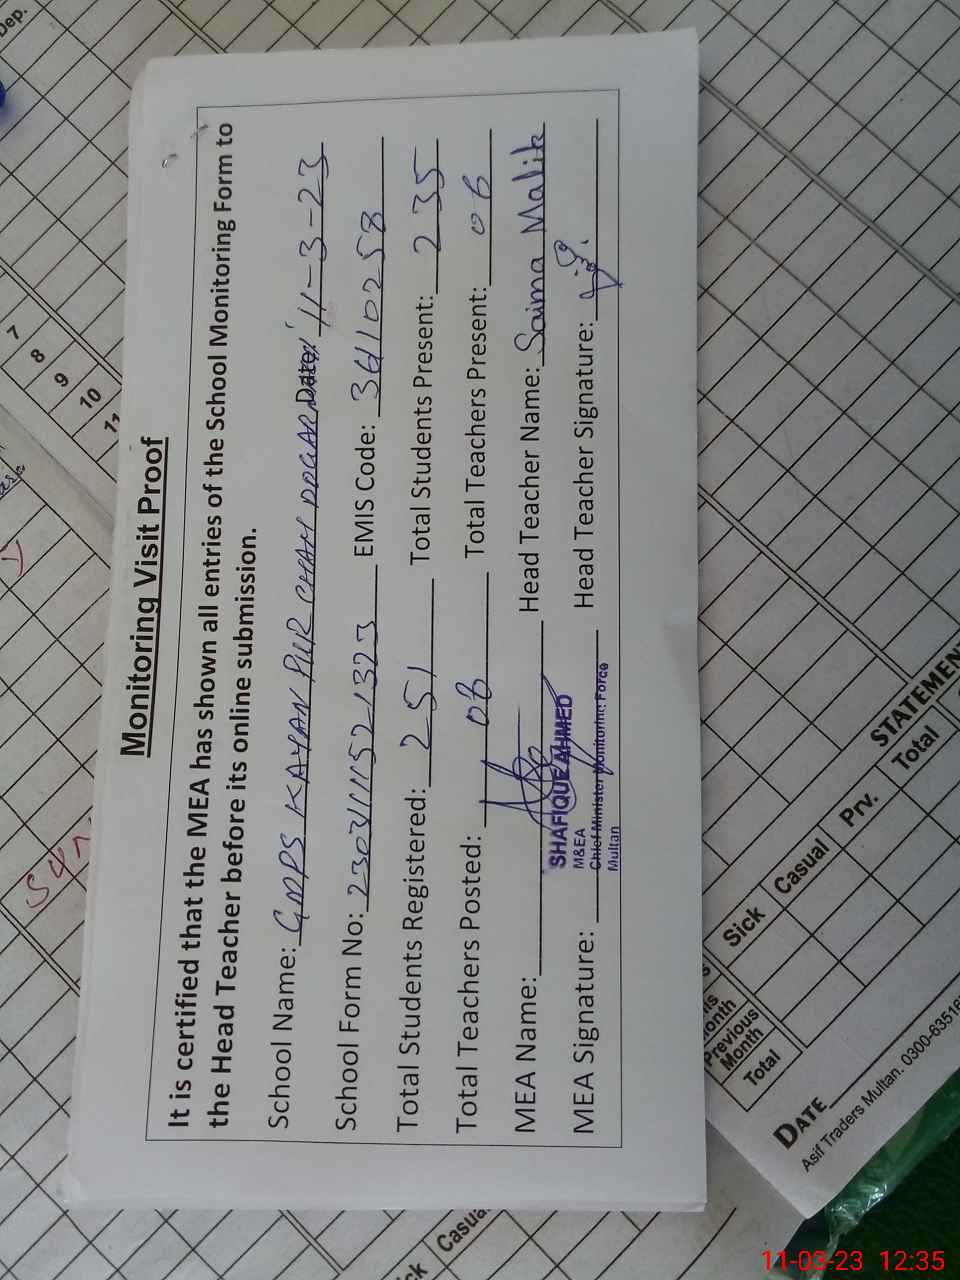 Monitoring Visit Proof
It is certified that the MEA has shown all entries of the School Monitoring Form to
the Head Teacher before its online submission.
School Name: GMPS KAYAN PUR CHAH DOGAR Date: 11-3-23
School Form No: EMIS Code: 36110258
Total Students Registered: 251 Total Students Present: 235
Total Teachers Posted: 06 Total Teachers Present: 06
MEA Name: Head Teacher Name: Saima Malik
MEA Signature: Head Teacher Signature:
SHAFIQUE AHMED
M&EA
Chief Minister Monitoring Force
Multan
Dep.
7
8
9
10
11
STATEMEN
Sick Casual Prv. Total
Month
Previous
Month
Total
DATE
Asif Traders Multan. 0300-6351
Casua
11-03-23 12:35